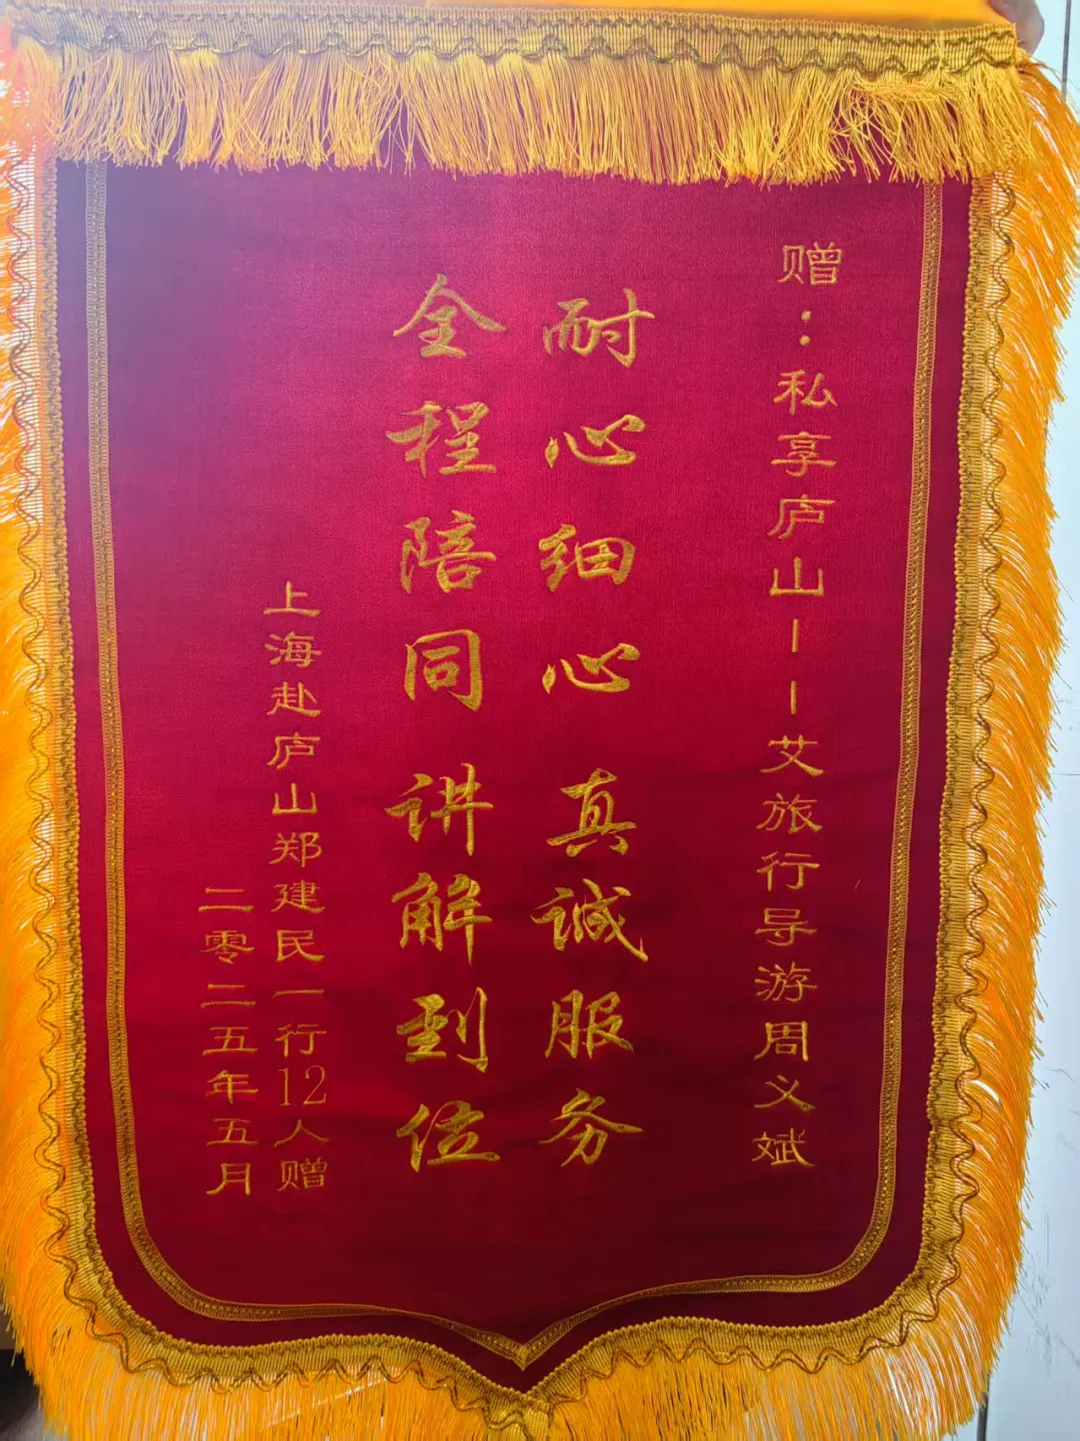 赠：私享庐山——艾旅行导游周义斌
耐心细心 真诚服务
全程陪同 讲解到位
上海赴庐山郑建民一行12人赠
二零二五年五月